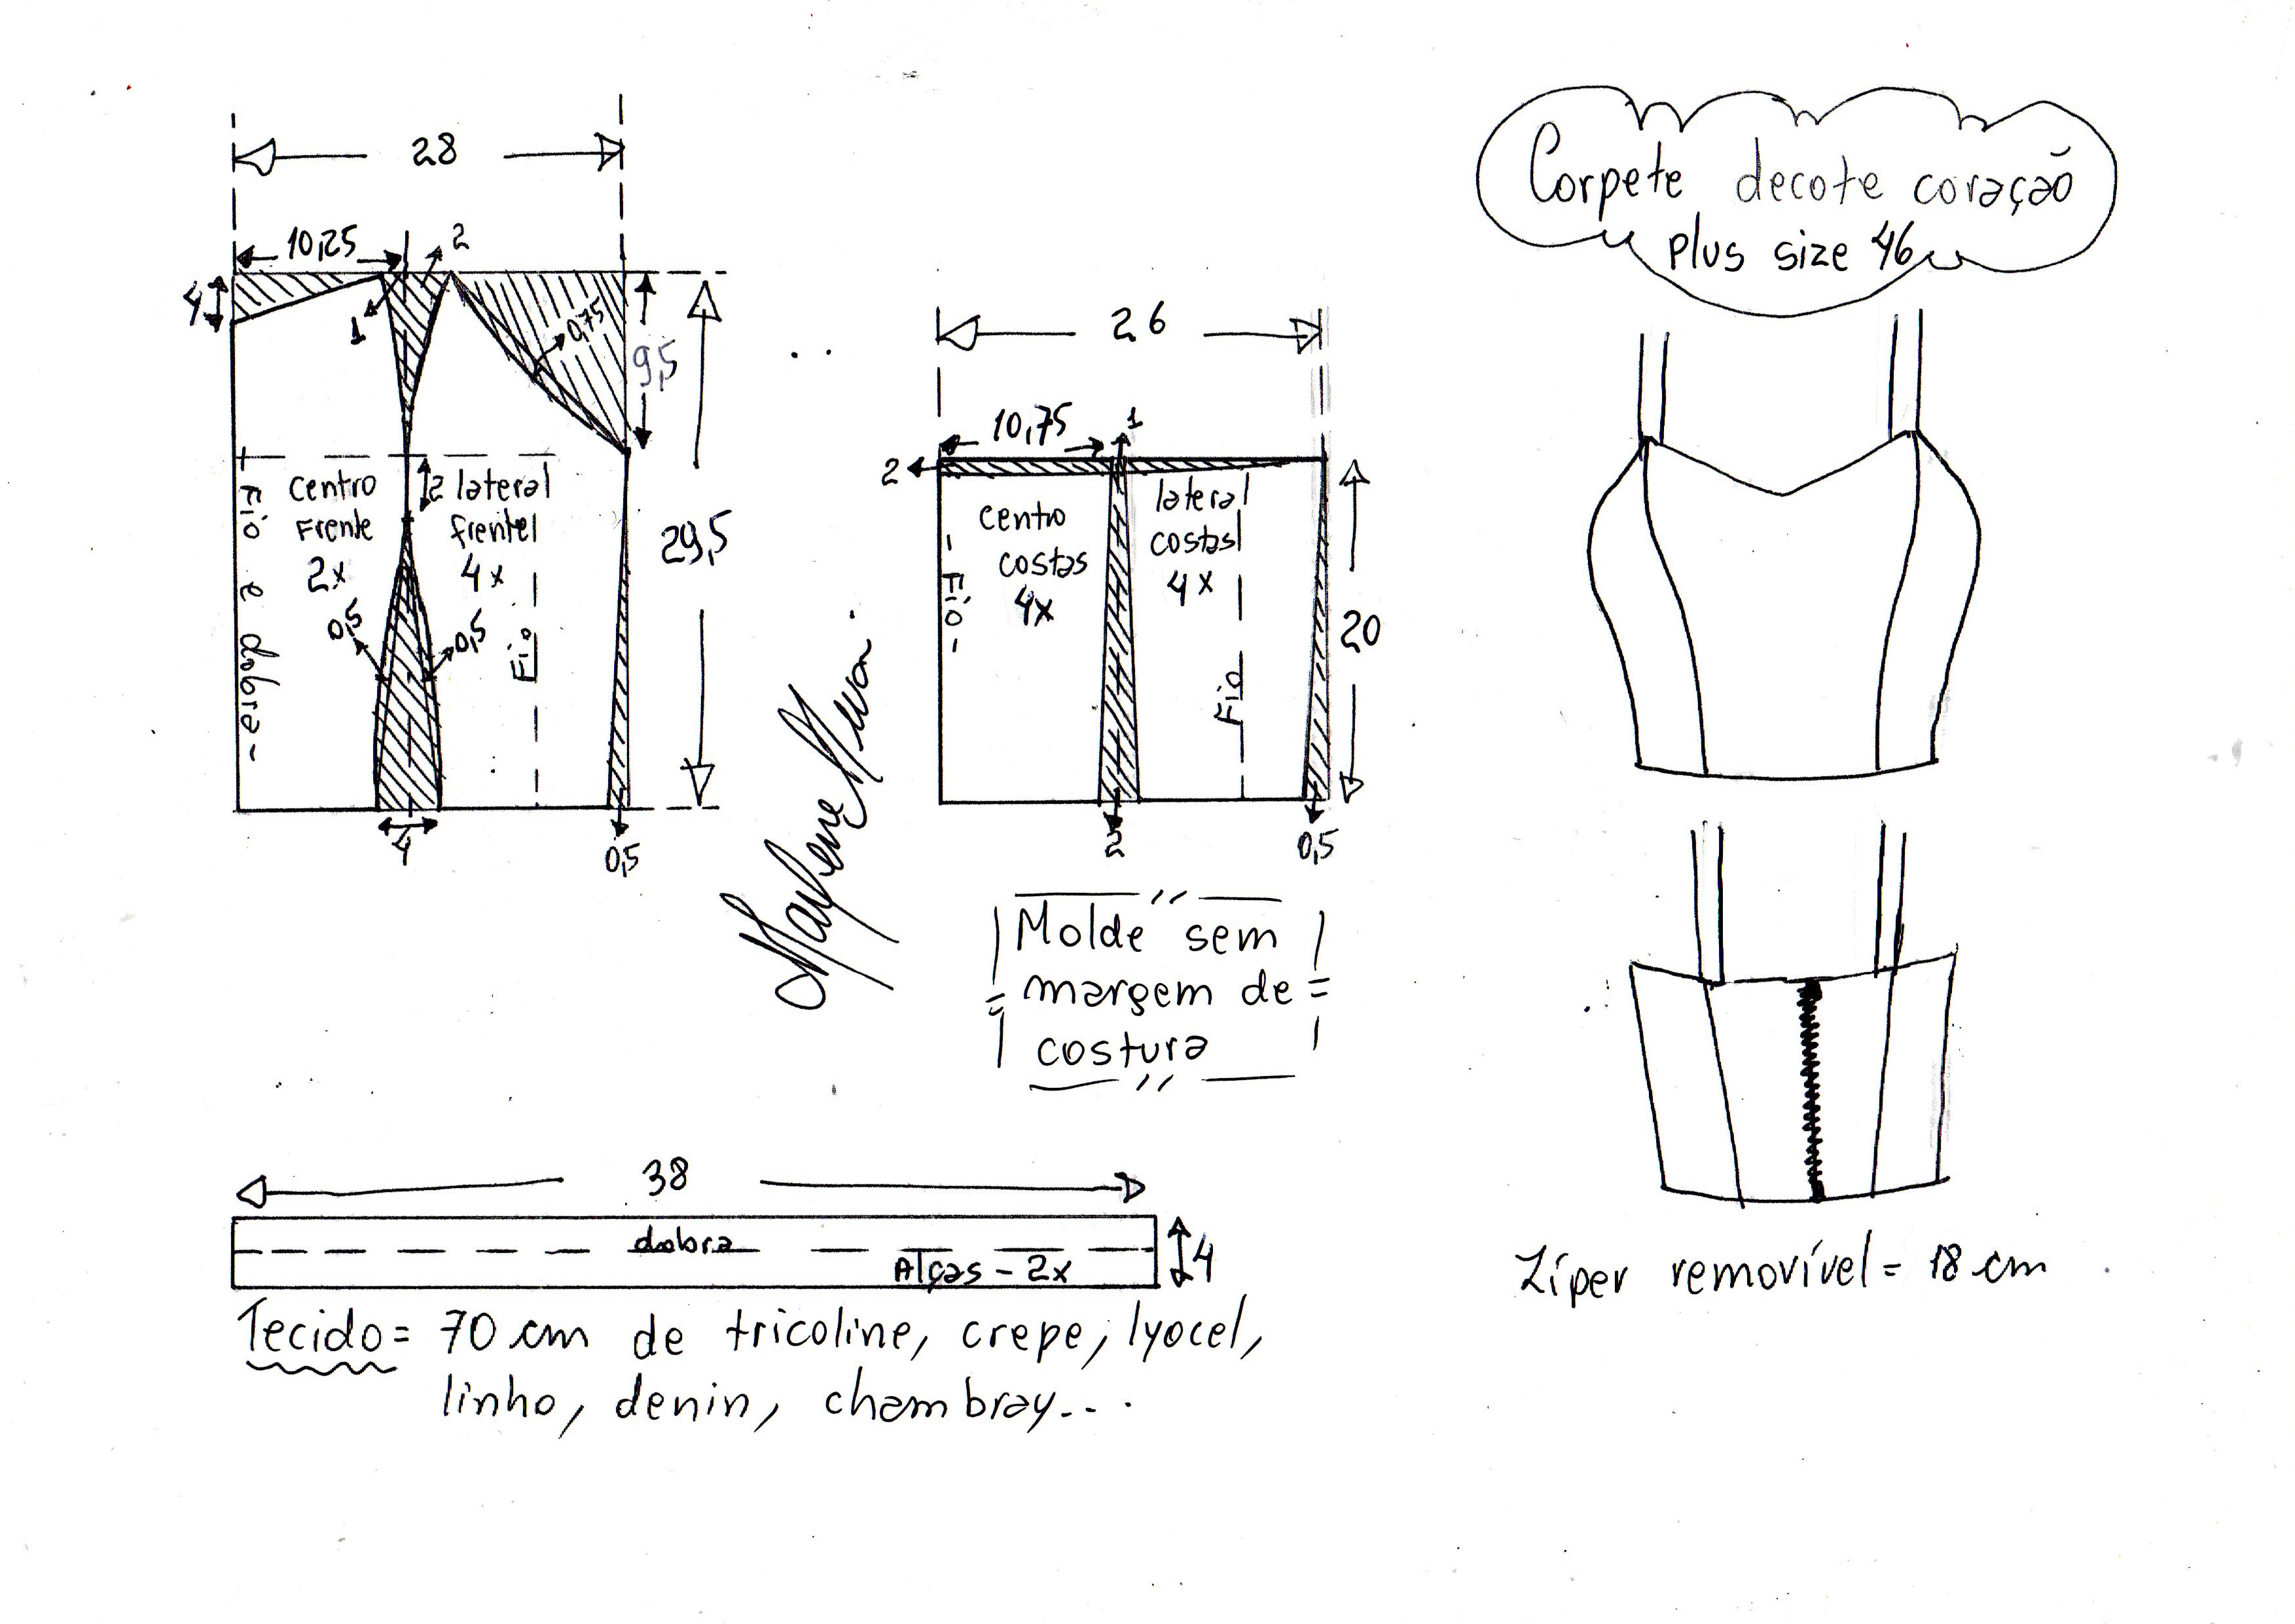 Corpete decote coração
plus size 46
28
10,25
2
4
1
0,75
9,5
29,5
centro
Frente
2x
2
lateral
frente
4x
0,5
0,5
Fio e dobra
Fio
4
0,5
26
10,75
1
2
centro
costas
4x
lateral
costas
4x
Fio
Fio
20
2
0,5
Molde sem
margem de
costura
38
dobra
Alças - 2x
4
Tecido = 70 cm de tricoline, crepe, lyocel,
linho, denin, chambray...
Zíper removível = 18 cm